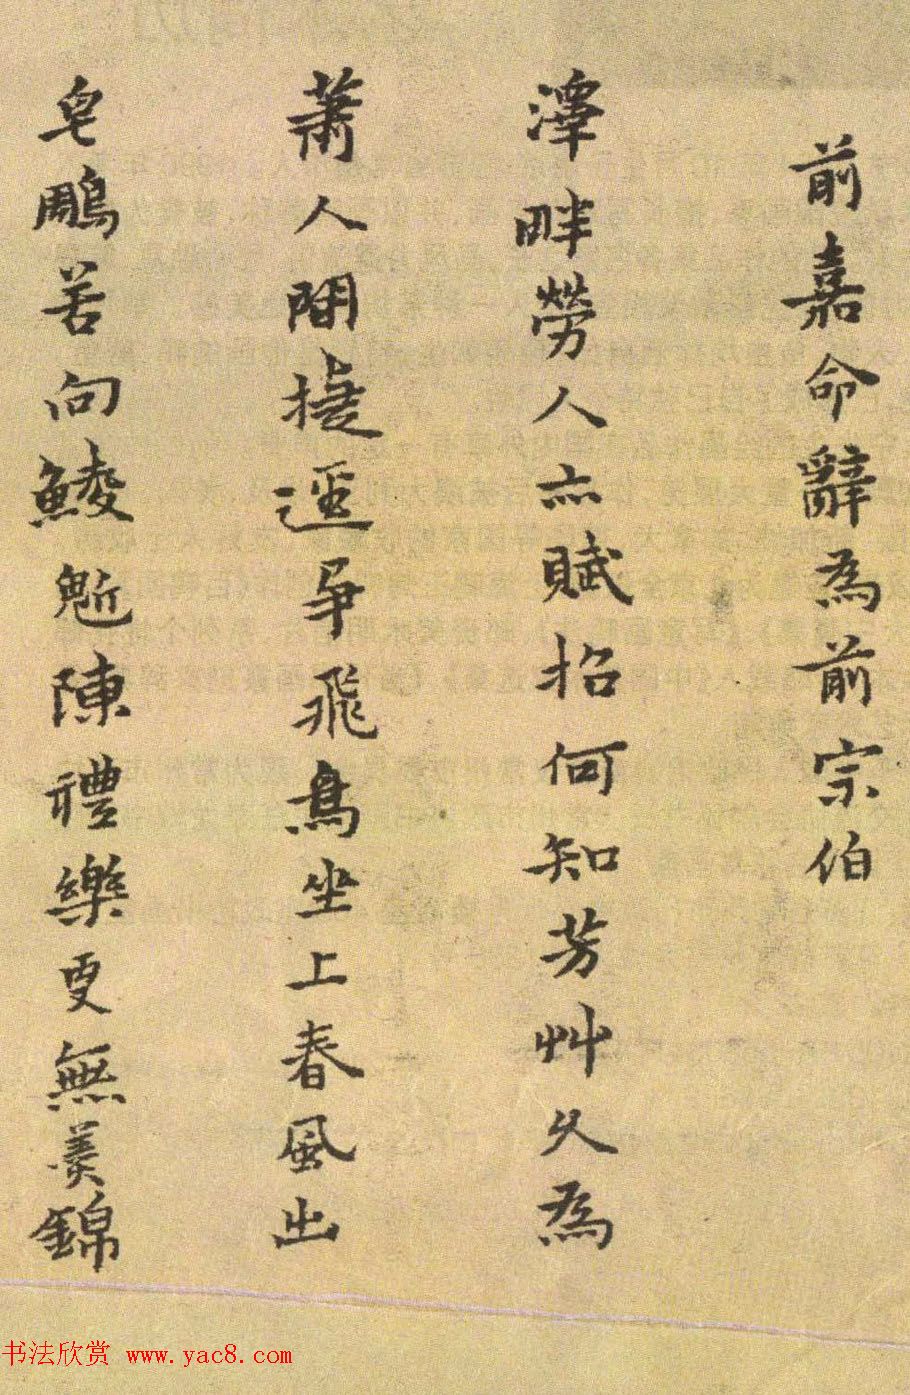 前嘉命辭為前宗伯
澤畔勞人亦賦招何知芳艸久為
蕭人間捷逕爭飛鳥坐上春風出
皂鵰苦向鯪魁陳禮樂更無羮錦
书法欣赏 www.yac8.com